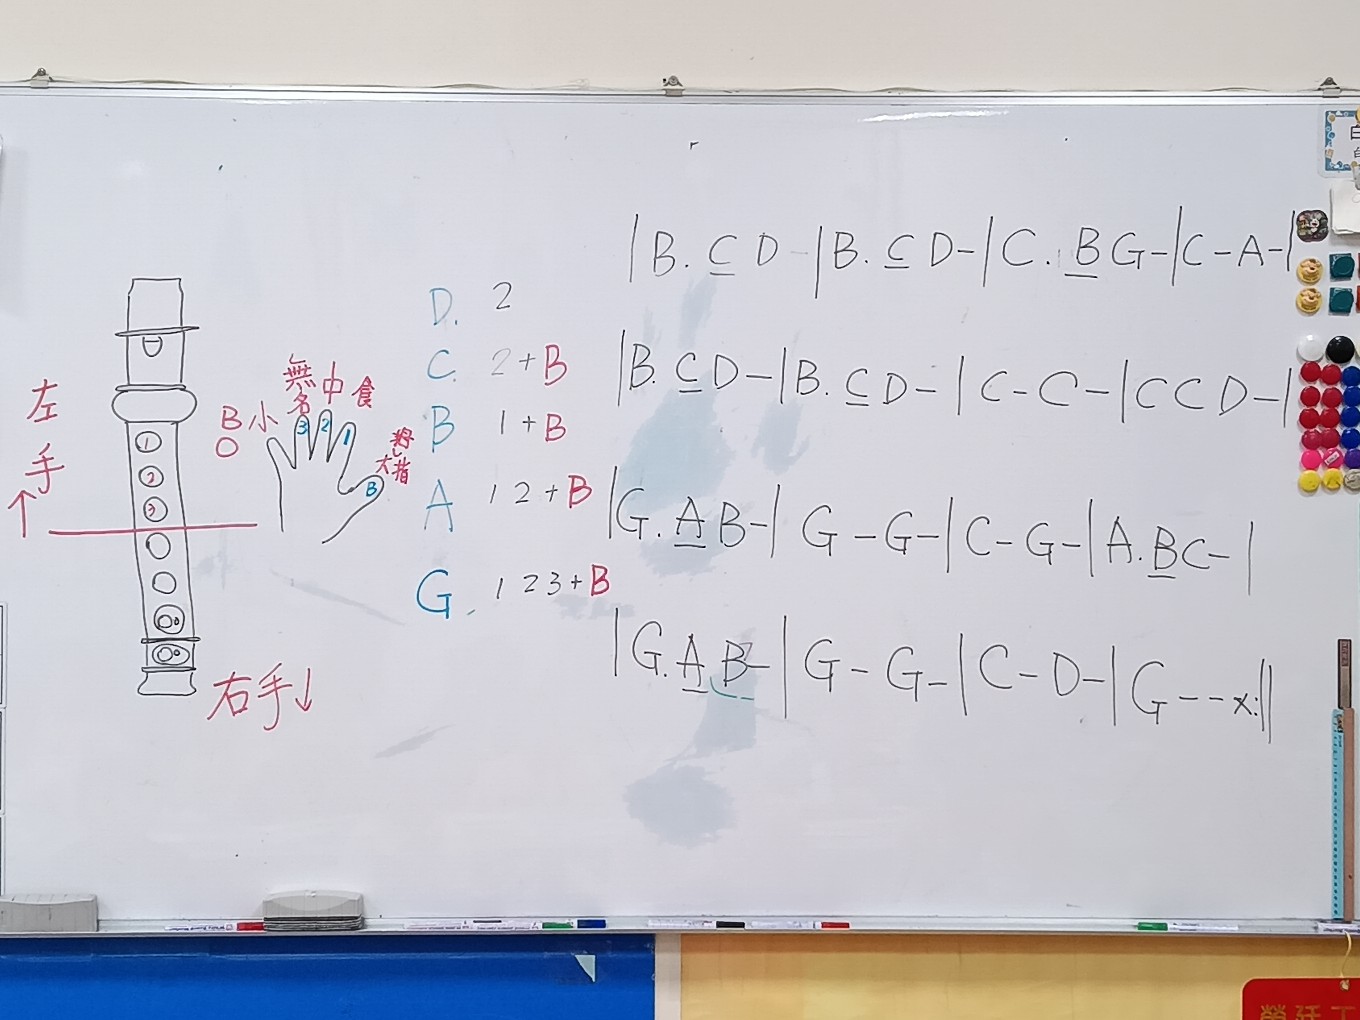 左手↑
① ② ③
B 小 無名 中 食
3 2 1 B
右手↓
D. 2
C. 2+B
B 1+B
A 12+B
G. 123+B
|B. C D -|B. C D-|C. B G-|C-A-|
|B. C D-|B. C D-|C-C-|C C D-|
|G. A B-|G-G-|C-G-|A. B C-|
|G. A B-|G-G-|C-D-|G--x:||